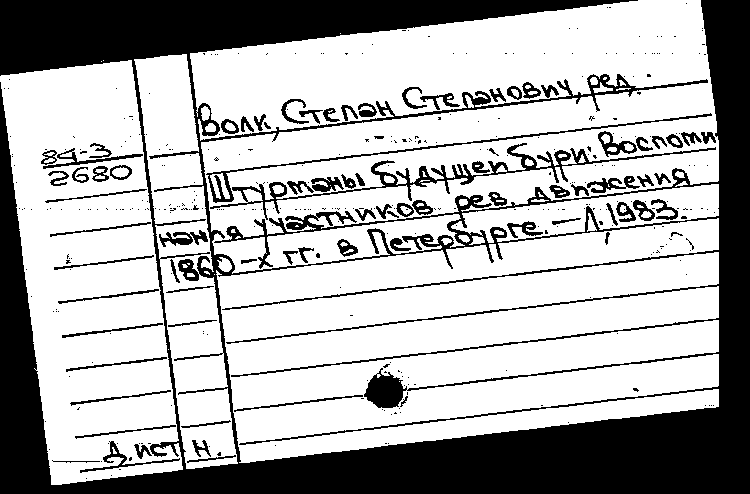 Волк, Степан Степанович, ред.
84-3
2680
Штурманы будущей бури: Воспоми-
нания участников рев. движения
1860-х гг. в Петербурге. — Л. 1983.
Д. ист. Н.